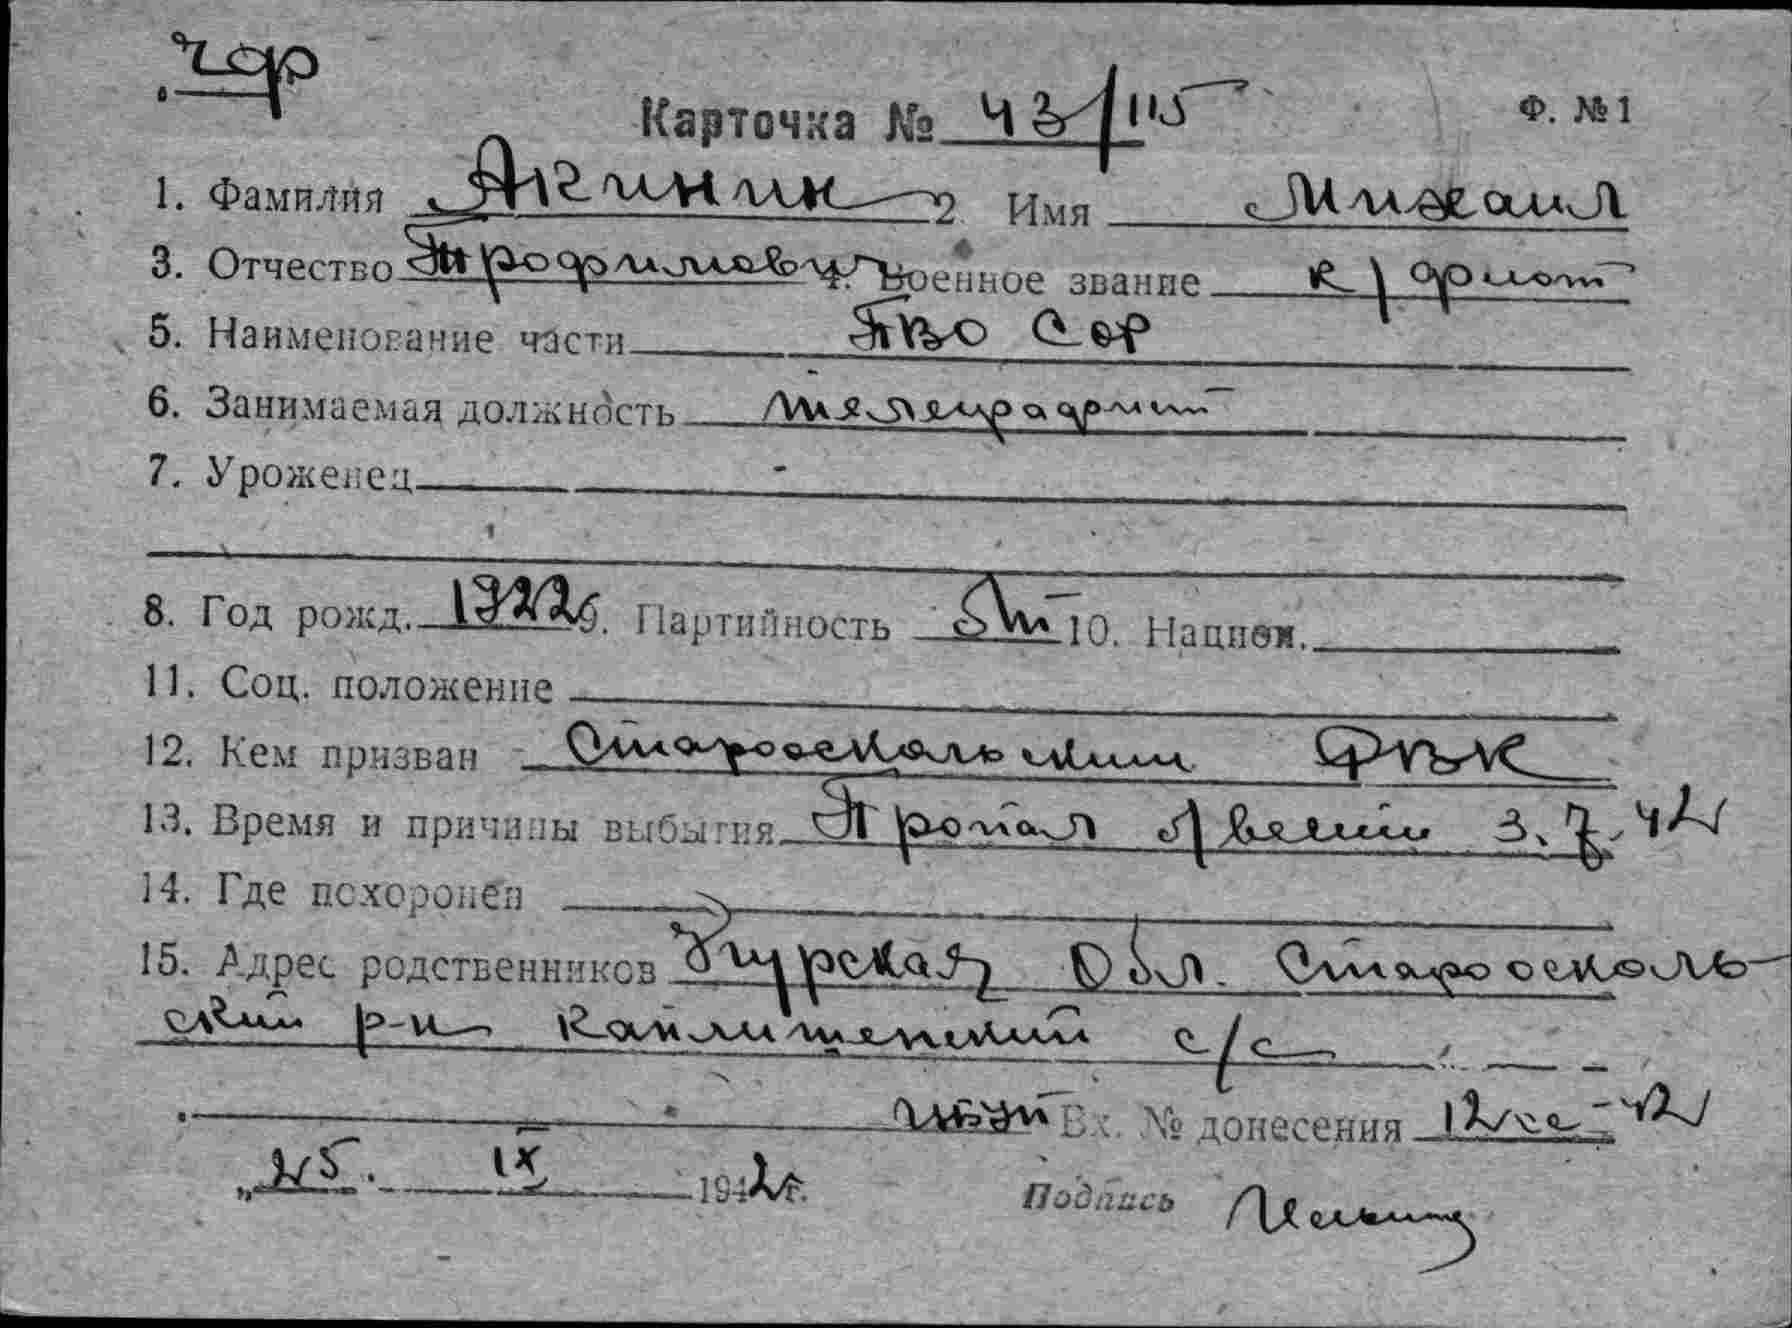 чф
Карточка № 43/115 Ф. №1
1. Фамилия Агинин 2 Имя Михаил
3. Отчество Трофимович 4. Военное звание к/флот
5. Наименование части ПВО СОР
6. Занимаемая должность телеграфист
7. Уроженец -
8. Год рожд. 1922 9. Партийность 10. Национ.
11. Соц. положение
12. Кем призван Старооскольским РВК
13. Время и причины выбытия Пропал б/вести 3.7.42
14. Где похоронен
15. Адрес родственников Курская Обл. Староосколь-
ский р-н Каплищенский с/с
Вх. № донесения 42
„25. IX 1942г. Подпись